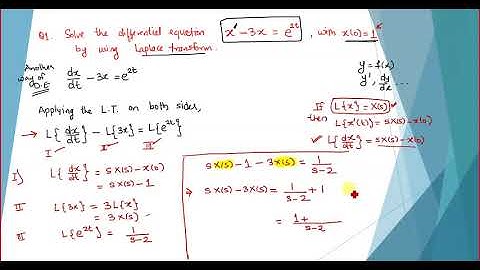 Q1. Solve the differential equation x' - 3x = e^{2t}, with x(0) = 1
by using Laplace transform.
Another way of D.E
dx/dt - 3x = e^{2t}
y = f(x)
y', dy/dx ...
Applying the L.T. on both sides,
→ L{dx/dt} - L{3x} = L{e^{2t}}
I II III
If L{x} = X(s)
then L{x'(t)} = sX(s) - x(0)
✓ L{dx/dt} = sX(s) - x(0)
I) L{dx/dt} = sX(s) - x(0)
= sX(s) - 1
II L{3x} = 3L{x}
= 3X(s)
III L{e^{2t}} = 1/(s-2)
sX(s) - 1 - 3X(s) = 1/(s-2)
⇒ sX(s) - 3X(s) = 1/(s-2) + 1
= 1+ /(s-2)